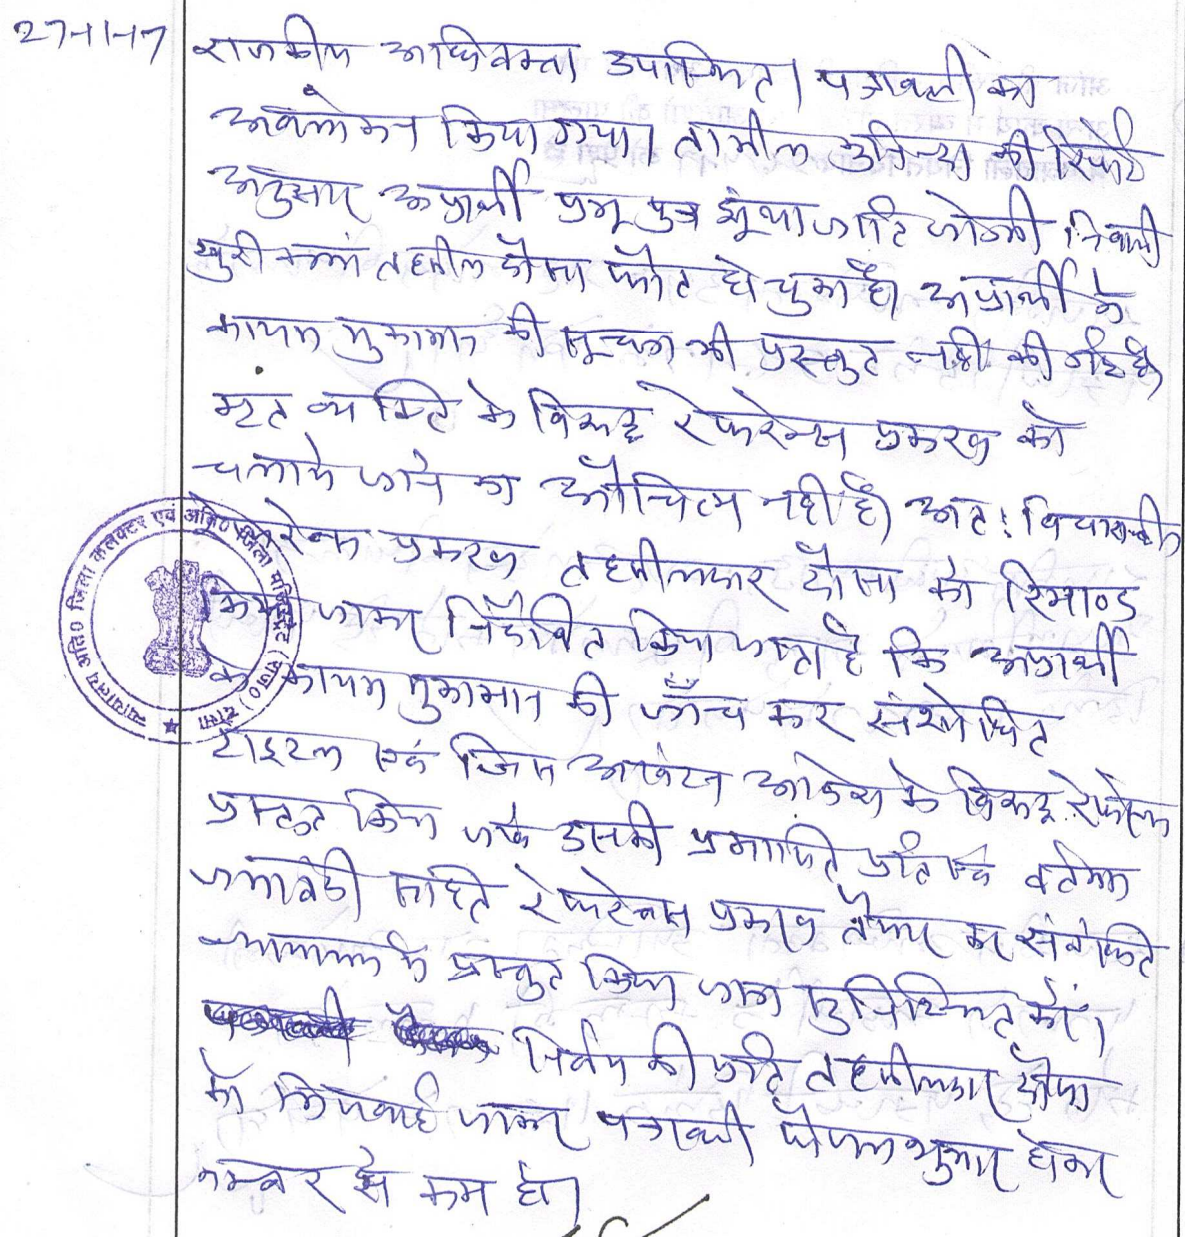 27-11-17
राजकीय अधिवक्ता उपस्थित। पत्रावली का
अवलोकन किया गया। तामील कुनिन्दा की रिपोर्ट
अनुसार अप्रार्थी प्रभू पुत्र जाति जोगी निवासी
खुरी कलां तहसील दौसा फौत हो चुका है। अप्रार्थी के
कायम मुकामान की सूचना भी प्रस्तुत नहीं की गई है।
मृत व्यक्ति के विरूद्ध रेफरेन्स प्रकरण को
चलाये जाने का औचित्य नहीं है। अतः विचाराधीन
रेफरेन्स प्रकरण तहसीलदार दौसा को रिमाण्ड
किया जाकर निर्देशित किया जाता है कि अप्रार्थी
के कायम मुकामान की जाँच कर संशोधित
टाइटल एवं जिस आवंटन आदेश के विरूद्ध रेफरेन्स
प्रस्तुत किया जावे उसकी प्रमाणित प्रति एवं वर्तमान
जमाबंदी सहित रेफरेन्स प्रकरण तैयार कर संबंधित
न्यायालय में प्रस्तुत किया जाना सुनिश्चित करें।
निर्णय की प्रति तहसीलदार दौसा
को भिजवाई जाकर पत्रावली फैसल शुमार होकर
नम्बर से कम हो।
न्यायालय अति० जिला कलक्टर एवं अति० जिला मजिस्ट्रेट (राज०) दौसा